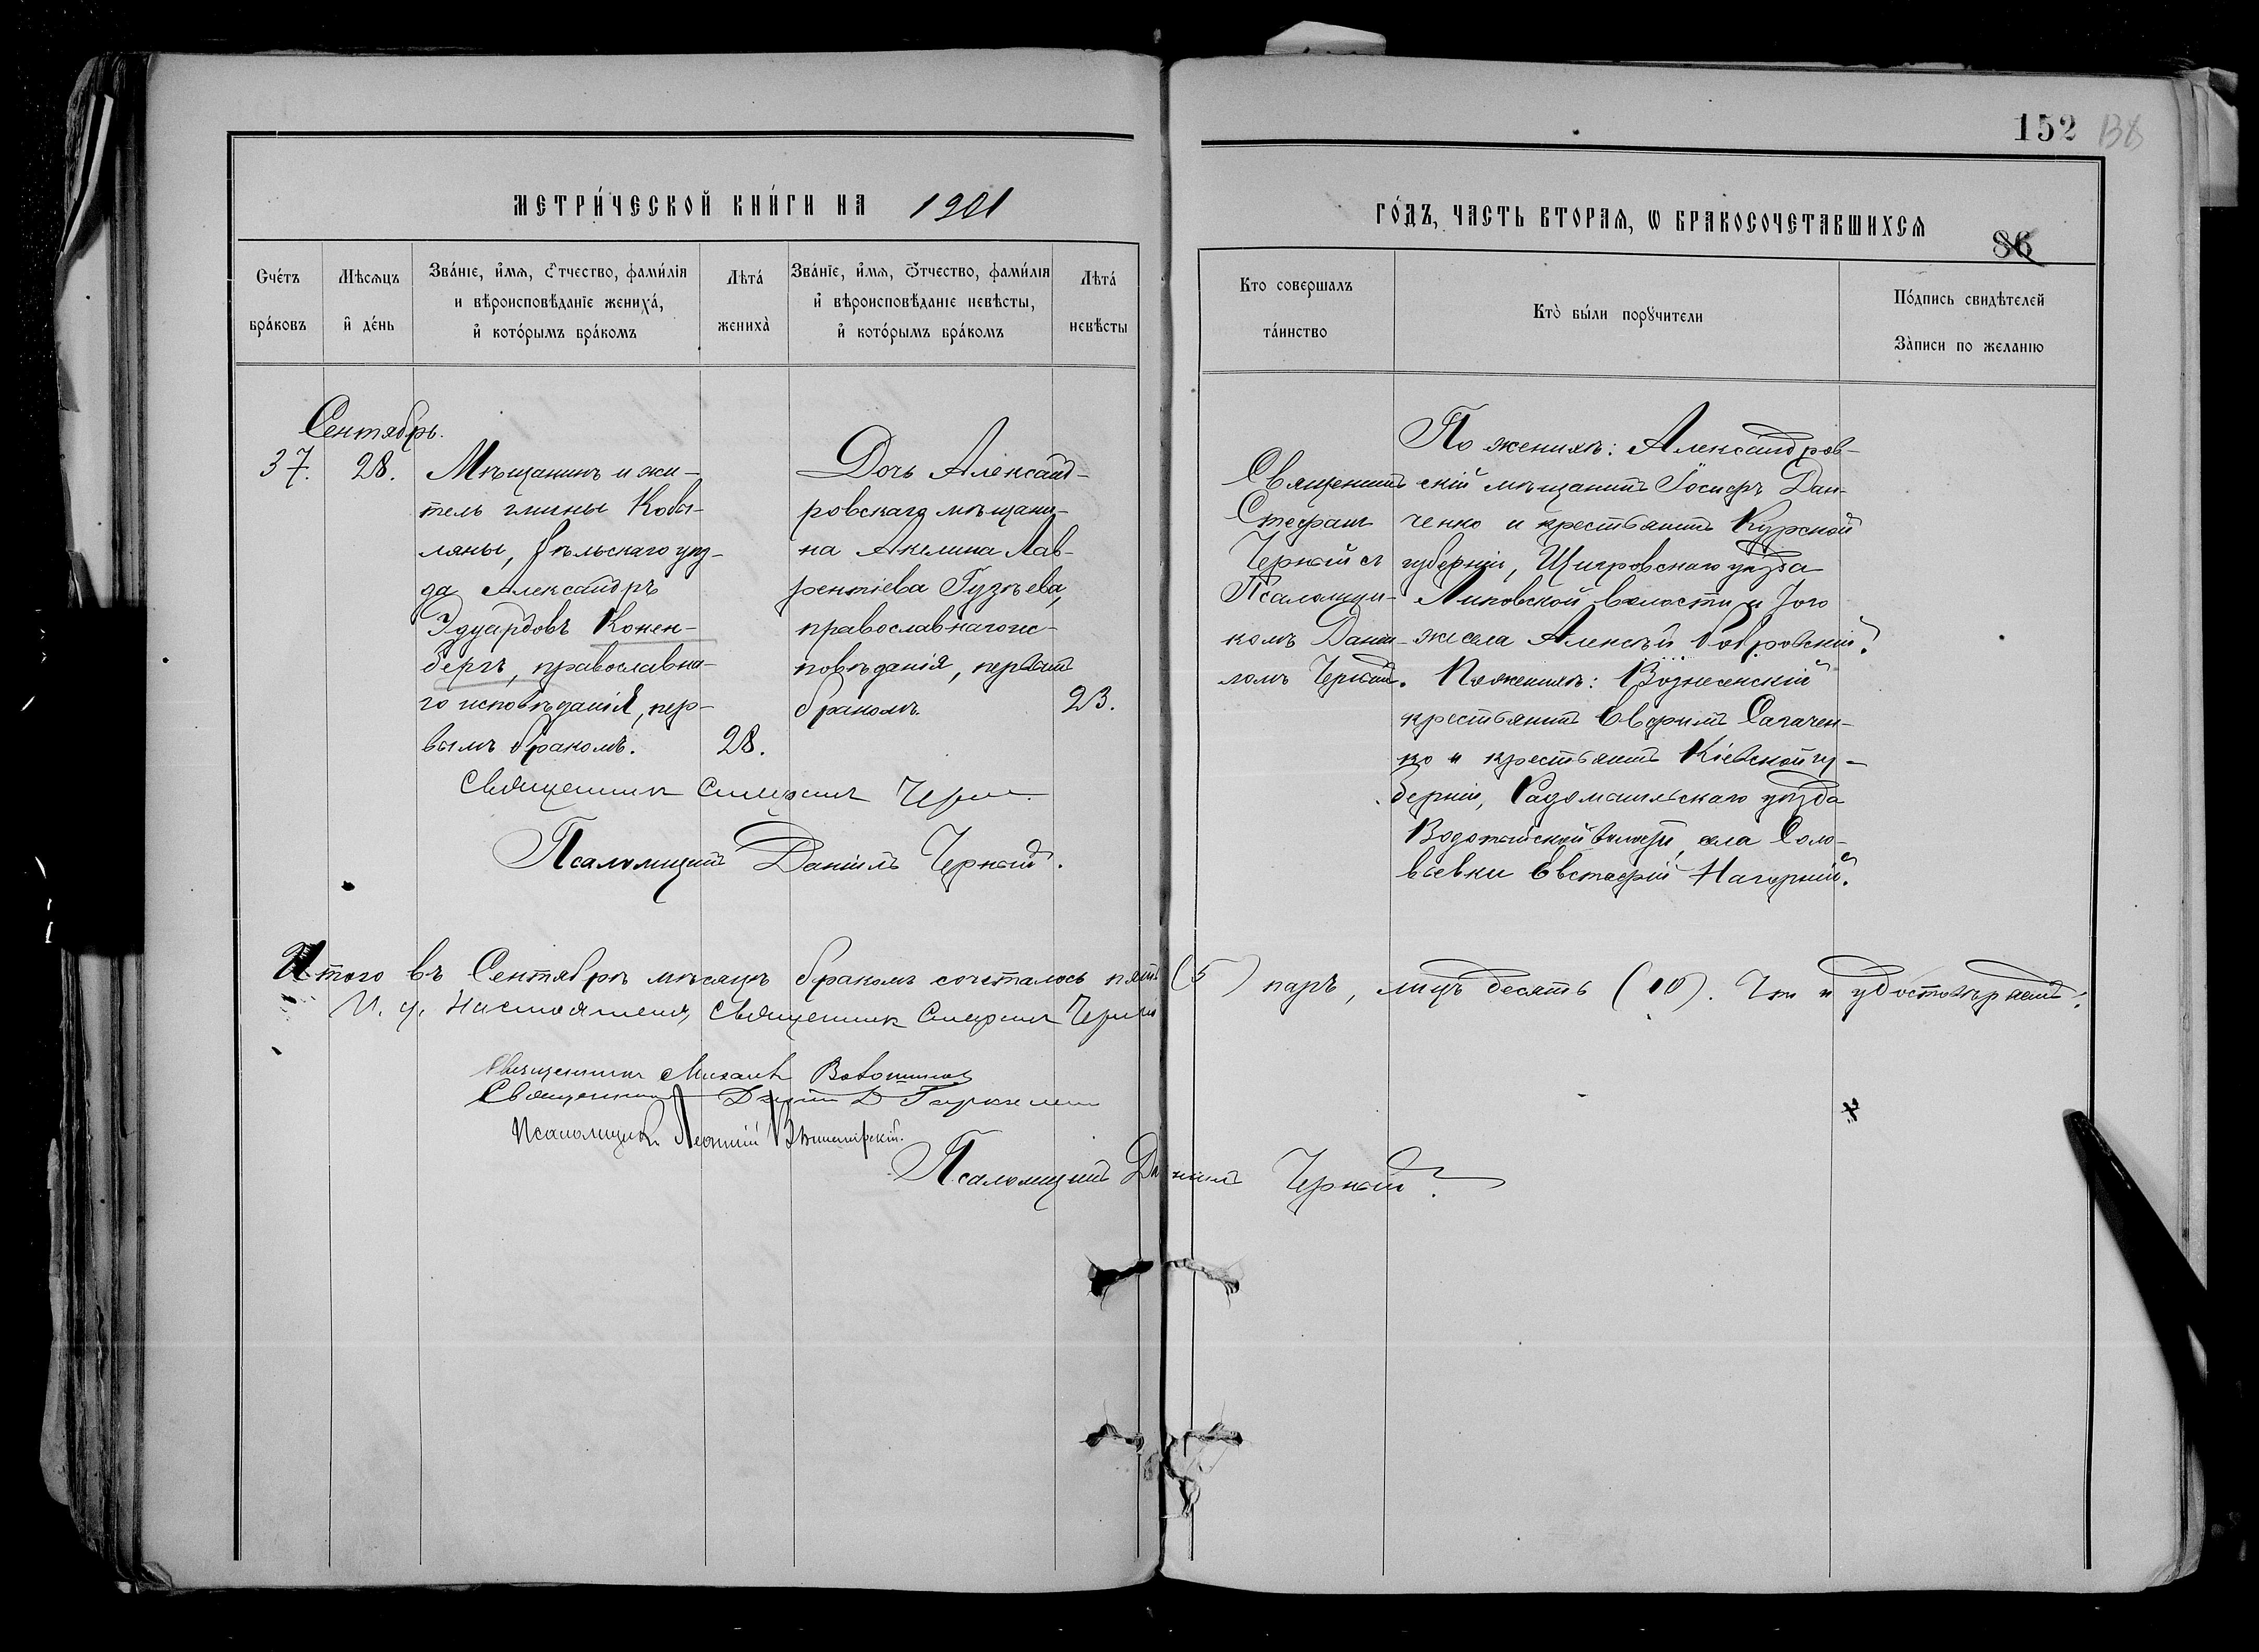 152
МЕТРИ́ЧЕСКОЙ КНИ́ГИ НА 1901
ГО́ДЪ, ЧАСТЬ ВТОРАѦ, Ѡ БРАКОСОЧЕТАВШИХСѦ
86
Сче́тъ бра́ковъ
Мѣсѧцъ и҆ де́нь
Зва́нїе, и҆́мѧ, ѻ҆́тчество, фами́лїѧ
и вѣроисповѣ́данїе жениха́,
и҆ кото́рымъ бра́комъ
Лѣта́ жениха̀
Зва́нїе, и҆́мѧ, ѻ҆́тчество, фами́лїѧ
и҆ вѣроисповѣ́данїе невѣсты,
и҆ кото́рымъ бра́комъ
Лѣта́ невѣ́сты
Кто совершалъ
та́инство
Кто̀ бы́ли порꙋчители
По́дпись свидѣ́телей
За̀писи по желанїю
Сентябрь.
37. 28.
Мѣщанинъ и жи-
тель гмины Кобы-
ляны, Бѣльскаго уѣз-
да Александръ
Эдуардовъ Конен-
бергъ, православна-
го исповѣданія, пер-
вымъ бракомъ.
28.
Дочь Александ-
ровскаго мѣщани-
на Акелина Лав-
рентіева Гузѣева,
православнаго ис-
повѣданія, первымъ
бракомъ.
23.
Священникъ Стефанъ Черный
Псаломщикъ Даніилъ Черный.
Священникъ
Стефанъ
Черный съ
Псаломщи-
комъ Дані-
ломъ Чернымъ.
По женихѣ: Александров-
скій мѣщанинъ Іосифъ Дан-
ченко и крестьянинъ Курской
губерніи, Щигровскаго уѣзда
Липовской волости и того
же села Алексѣй Бобровскій.
По женихѣ: Вознесенскій
крестьянинъ Евфимъ Сагачен-
ко и крестьянинъ Кіевской гу-
берніи, Радомысльскаго уѣзда
Водотыйской волости, села Соло-
вьевки Евстафій Нагорный.
Итого въ Сентябрѣ мѣсяцѣ бракомъ сочеталось пять (5) паръ, лицъ десять (10). Что и удостовѣряемъ:
И. д. Настоятеля, Священникъ Стефанъ Черный
Священникъ Михаилъ
Священникъ
Псаломщикъ Леонтій
Псаломщикъ Даніилъ Черный.